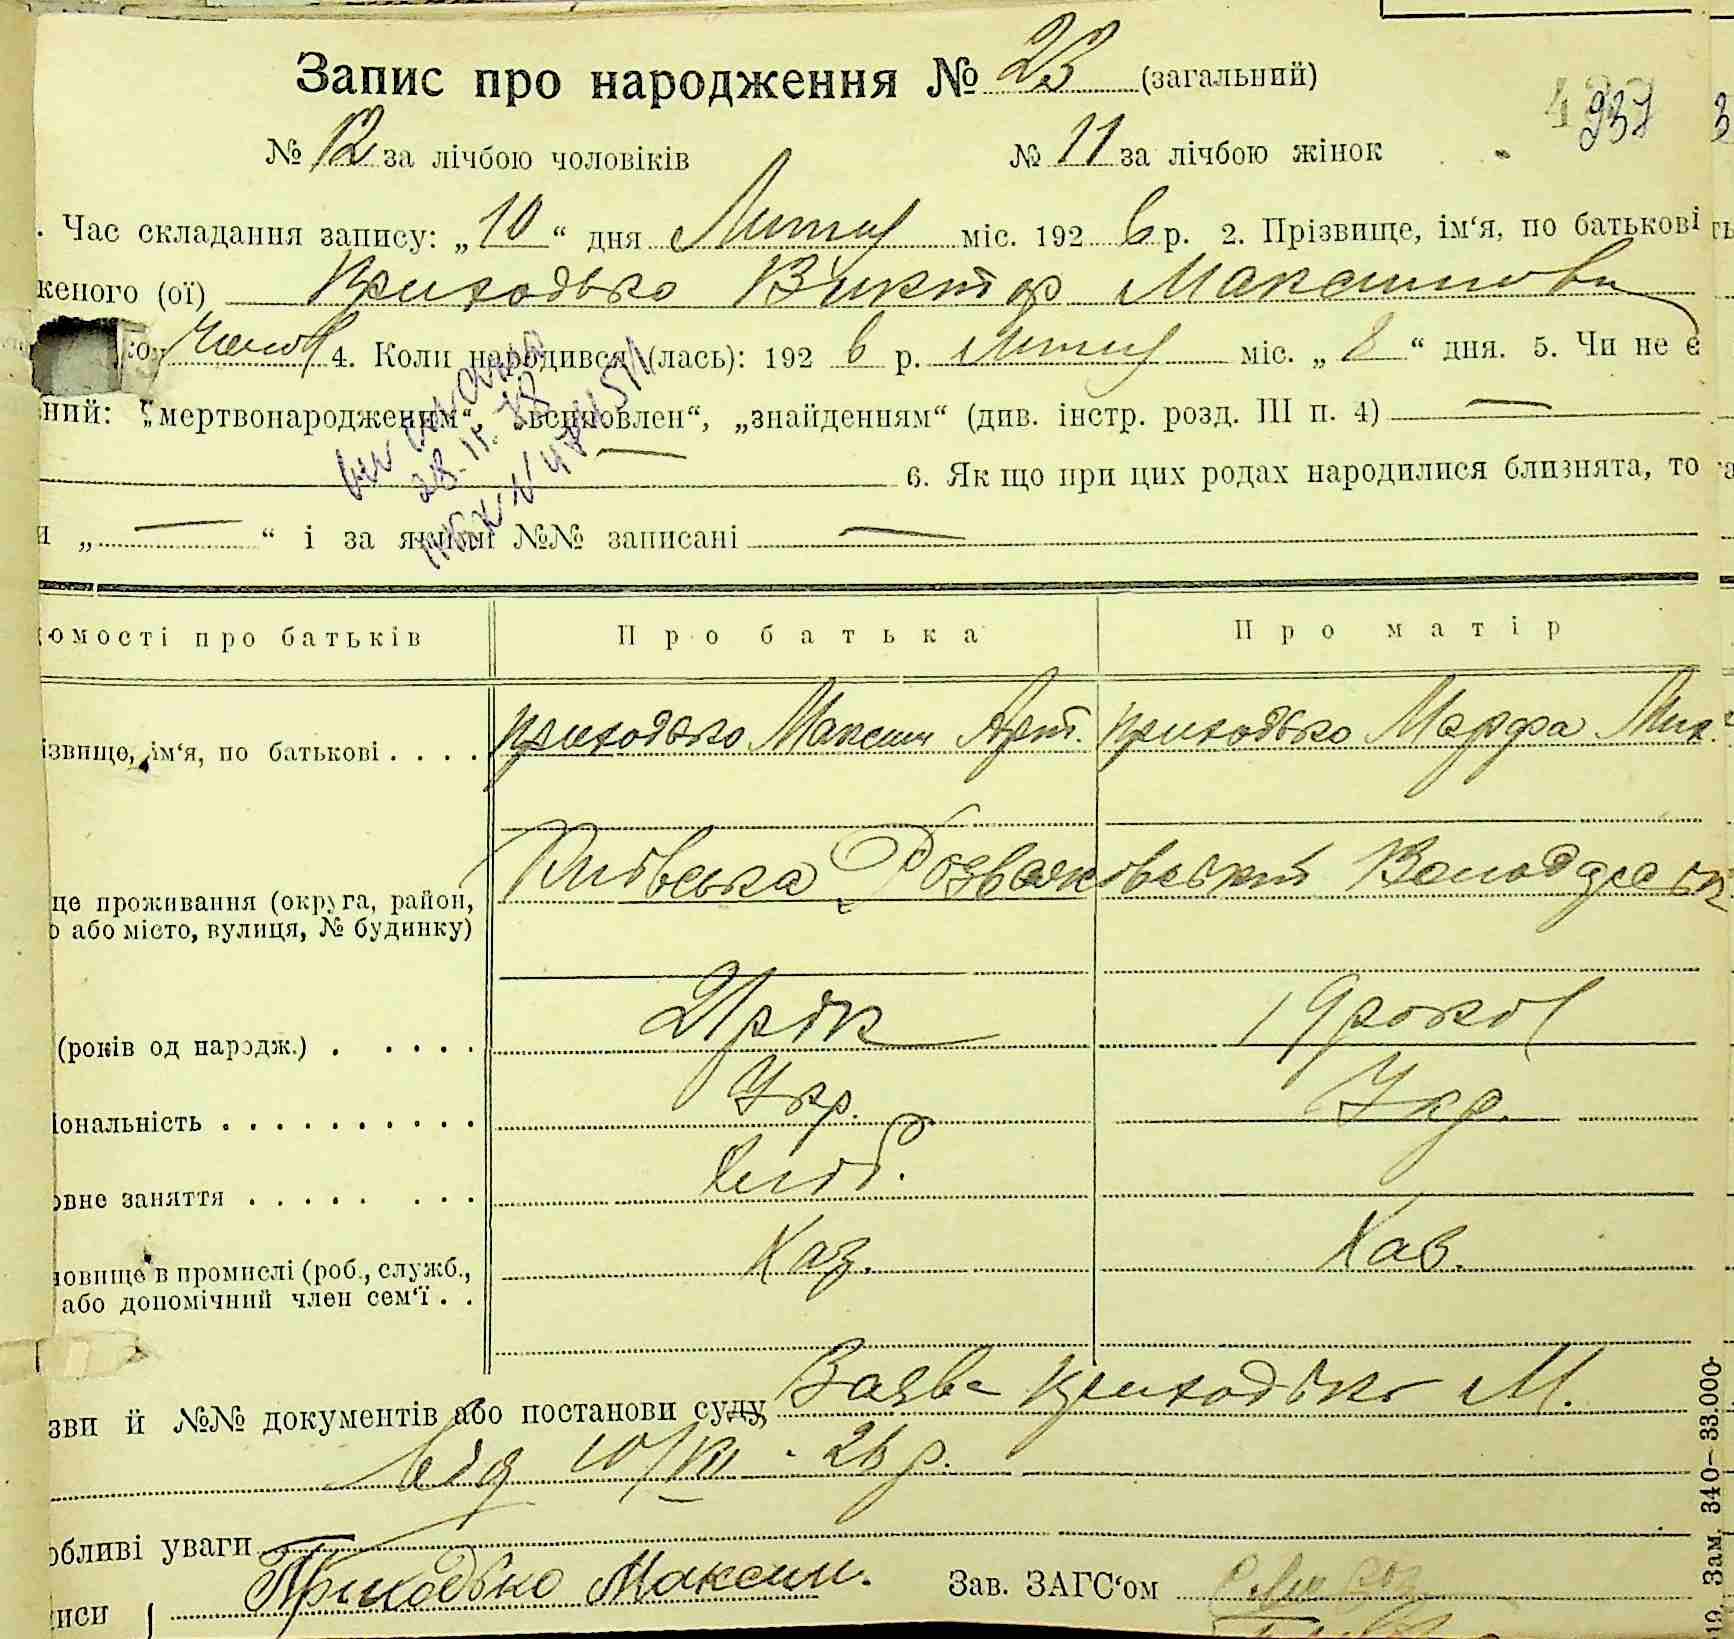 Запис про народження № 23 (загальний)
937
№ 12 за лічбою чоловіків № 11 за лічбою жінок
. Час складання запису: „10“ дня Лютий міс. 192 6 р. 2. Прізвище, ім‘я, по батькові
женого (ої) Приходько Виктор Максимови
Чолов 4. Коли народився (лась): 192 6 р. Лютий міс. „8“ дня. 5. Чи не є
ний: „мертвонародженим“ „всиновлен“, „знайденням“ (див. інстр. розд. III п. 4) —
— 6. Як що при цих родах народилися близнята, то
и „ — “ і за якими №№ записані —
омості про батьків Про батька Про матір
ізвище, ім‘я, по батькові . . . . Приходько Максим Арт. Приходько Марфа Мих.
Київська Розважівський
це проживання (округа, район,
о або місто, вулиця, № будинку)
(років од народж.) . . . . . 21 рік 19 років
іональність . . . . . . . . . . Укр. Укр.
овне заняття . . . . . . . . Хліб.
овище в промислі (роб., служб., Хаз. Хаз.
або допомічний член сем‘ї . .
зви й №№ документів або постанови суду Заява Приходько М.
від 10/VII - 26 р.
обливі уваги
иси Приходько Максим. Зав. ЗАГС‘ом
10. Зам. 340—33.000